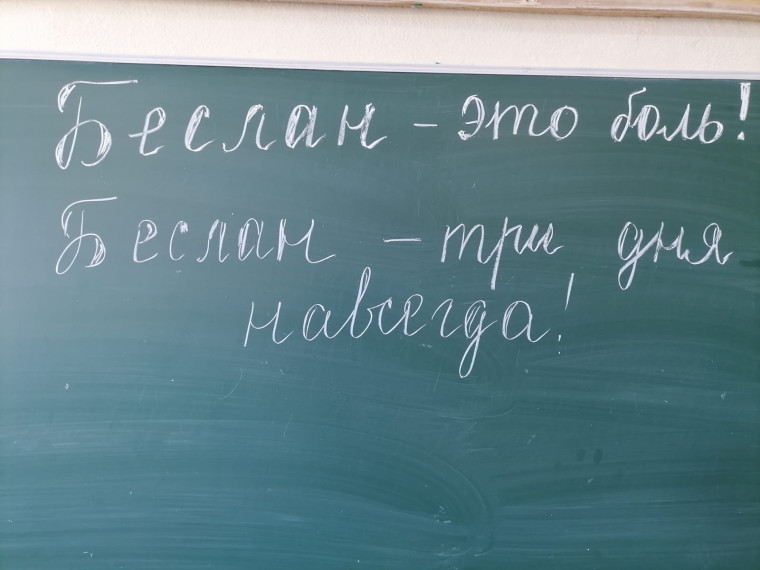 Беслан - это боль!
Беслан - три дня
навсегда!